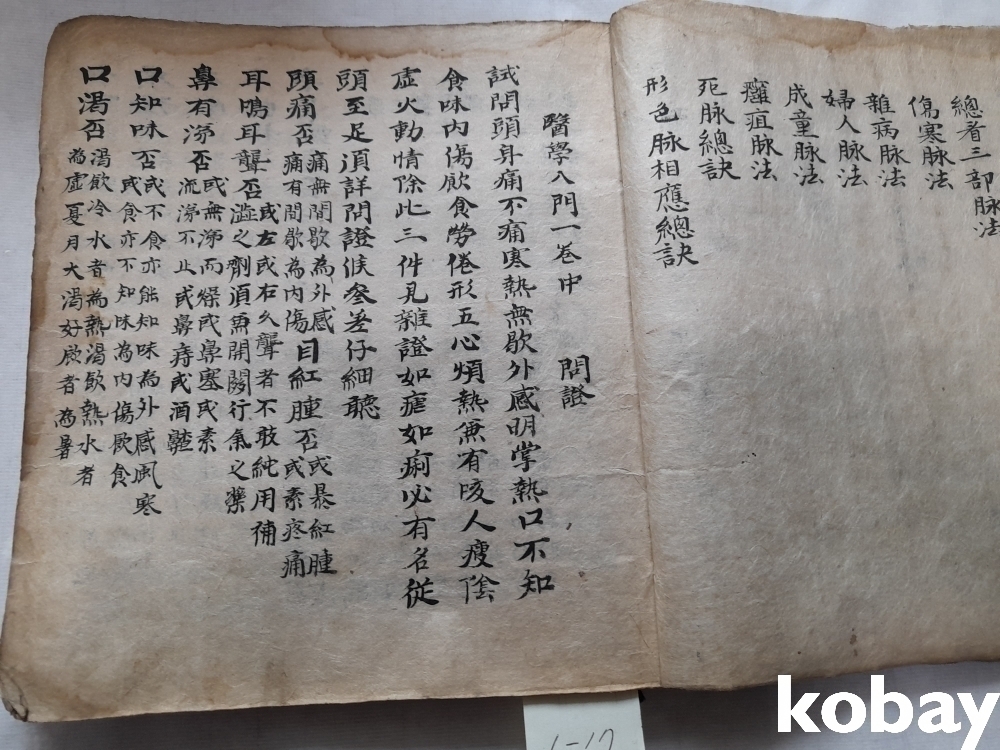 總看三部脉法
傷寒脉法
雜病脉法
婦人脉法
成童脉法
癰疽脉法
死脉總訣
形色脉相應總訣
醫學入門一卷中 問證
試問頭身痛不痛寒熱無歇外感明掌熱口不知
食味內傷飮食勞倦形五心煩熱兼有咳人瘦陰
虛火動情除此三件見雜證如瘧如痢必有名從
頭至足湏詳問證候叅差仔細聽
頭痛否痛無間歇為外感痛有間歇為內傷目紅腫否或暴紅腫或素疼痛
耳鳴耳聾否或左或右久聾者不敢純用補澁之劑湏兼開關行氣之藥
鼻有涕否或無涕而燥或鼻塞或素流涕不止或鼻痔或酒齄
口知味否或不食亦能知味為外感風寒或食亦不知味為內傷飮食
口渴否渴飮冷水者為熱渴飮熱水者為虛夏月大渴好飮者為暑
1-17
kobay